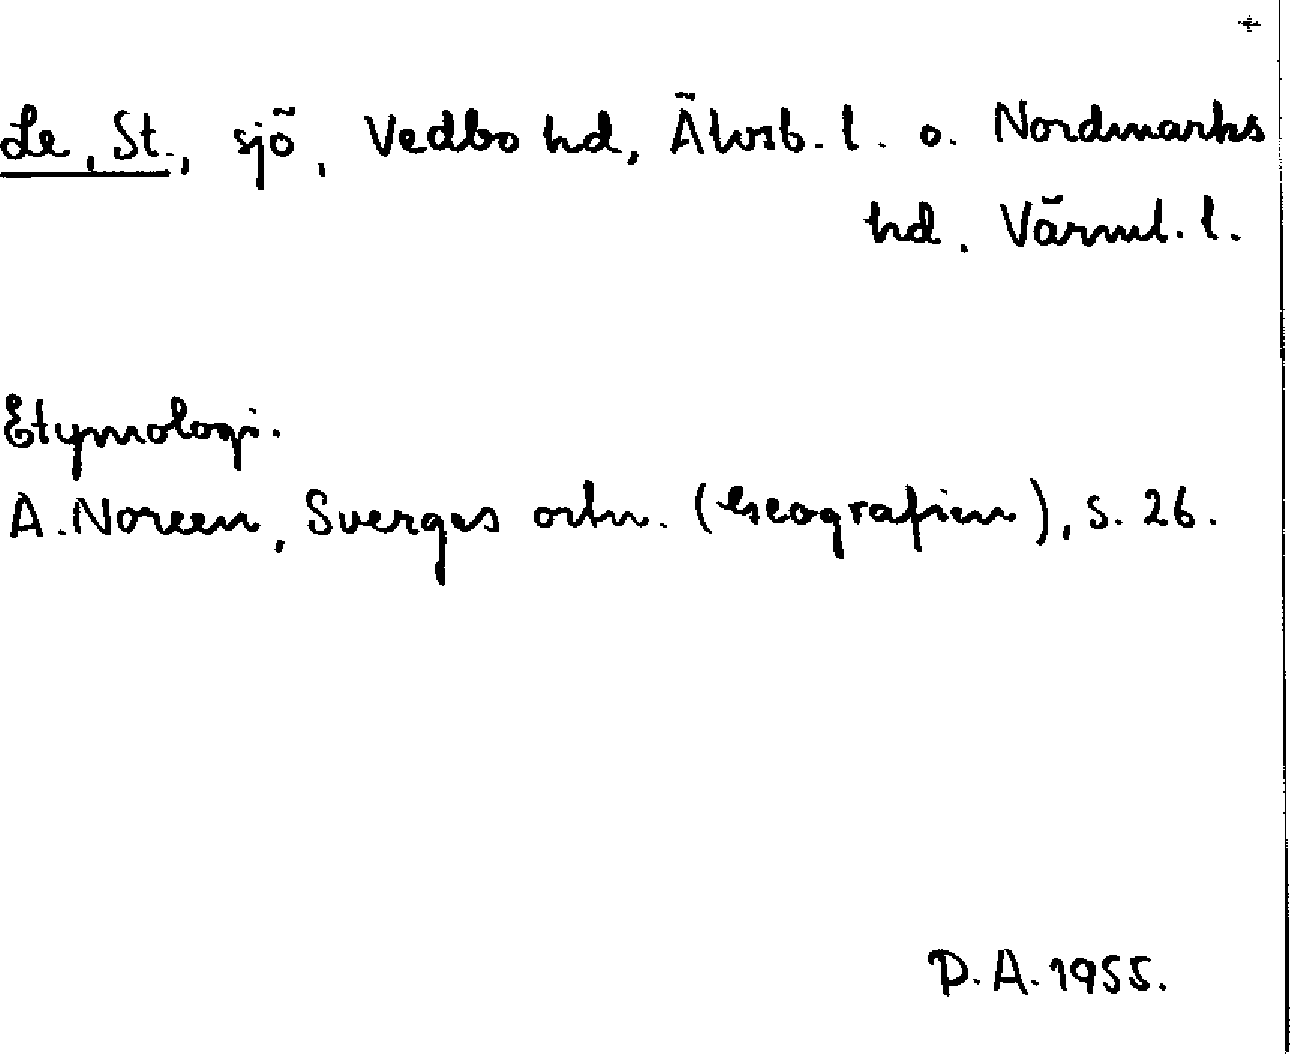 Le, St., sjö, Vedbo hd, Älvsb. l. o. Nordmarks
hd, Värml. l.
Etymologi.
A. Noreen, Sverges ortn. (Geografien), s. 26.
D. A. 1955.